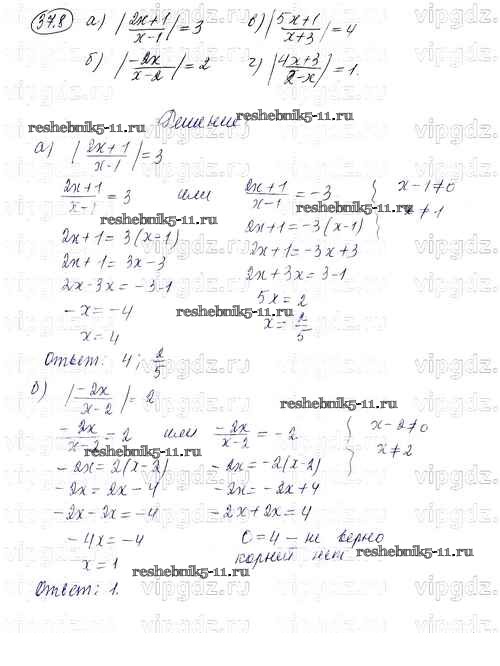 37.8 а) |(2x+1)/(x-1)| = 3 в) |(5x+1)/(x+3)| = 4
б) |(-2x)/(x-2)| = 2 г) |(4x+3)/(2-x)| = 1.
Решение
reshebnik5-11.ru reshebnik5-11.ru
а) |(2x+1)/(x-1)| = 3
(2x+1)/(x-1) = 3 или (2x+1)/(x-1) = -3 { x-1≠0
reshebnik5-11.ru reshebnik5-11.ru
2x+1 = 3(x-1) 2x+1 = -3(x-1) x≠1
2x+1 = 3x-3 2x+1 = -3x+3
2x-3x = -3-1 2x+3x = 3-1
-x = -4 5x = 2
reshebnik5-11.ru
x = 4 x = 2/5
Ответ: 4; 2/5
б) |(-2x)/(x-2)| = 2
reshebnik5-11.ru
(-2x)/(x-2) = 2 или (-2x)/(x-2) = -2 { x-2≠0
reshebnik5-11.ru
-2x = 2(x-2) -2x = -2(x-2) x≠2
-2x = 2x-4 -2x = -2x+4
-2x-2x = -4 -2x+2x = 4
-4x = -4 0=4 – не верно
x = 1 корней нет
reshebnik5-11.ru reshebnik5-11.ru
Ответ: 1.
vipgdz.ru